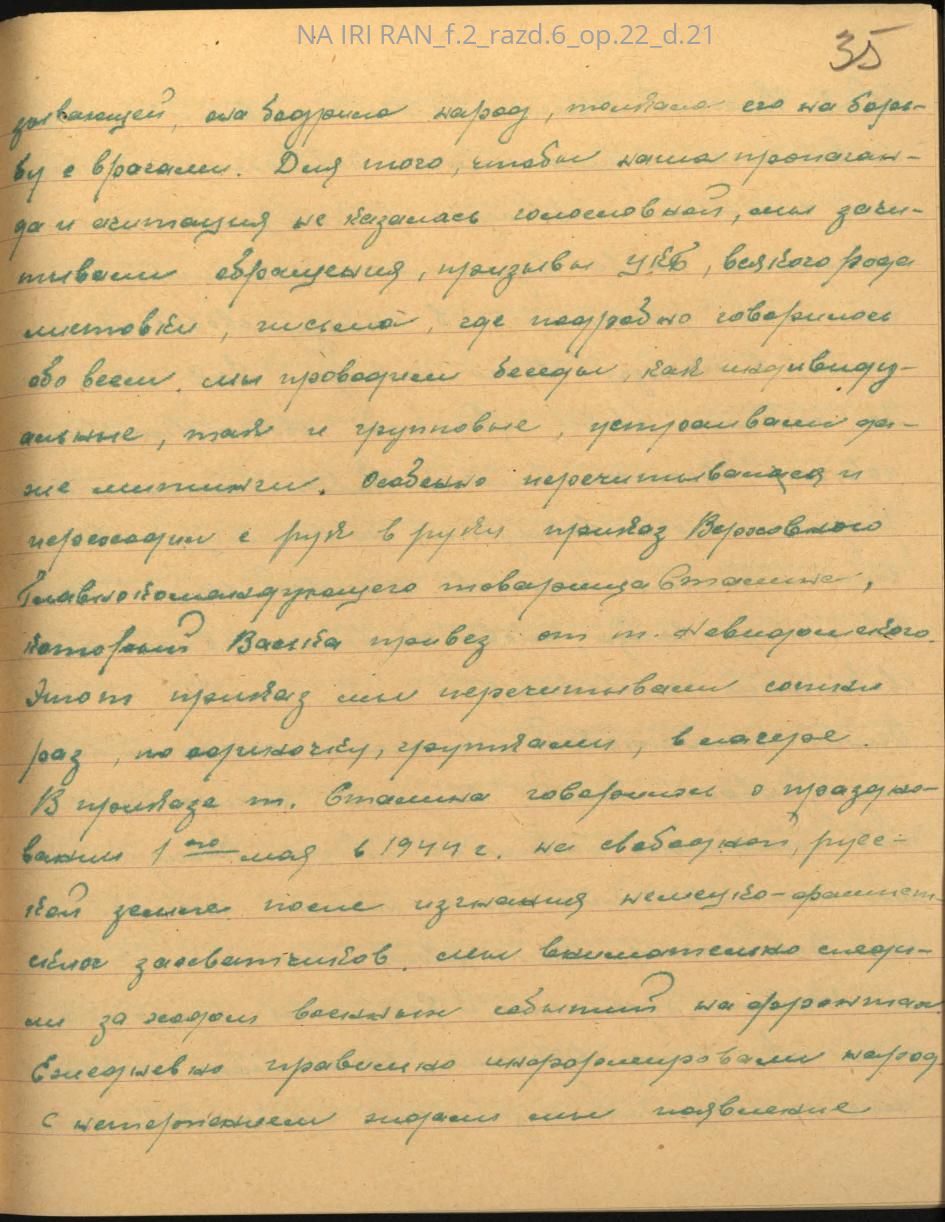 NA IRI RAN_f.2_razd.6_op.22_d.21
35
зывающей, она бодрила народ, толкала его на борь-
бу с врагами. Для того, чтобы наша пропаган-
да и агитация не казалась голословной, мы зачи-
тывали обращения, призывы ЦКБ, всякого рода
листовки, письма, где подробно говорилось
обо всем. Мы проводили беседы, как индивиду-
альные, так и групповые, устраивали да-
же митинги. Особенно перечитывался и
переходил с рук в руки приказ Верховного
Главнокомандующего товарища Сталина,
который Васька привез от т.
Этот приказ мы перечитывали сотни
раз, по одиночку, группами, в лагере.
В приказе т. Сталина говорилось о праздно-
вании 1го мая в 1944 г. на свободной, русс-
кой земле после изгнания немецко-фашист-
ских захватчиков. Мы внимательно следи-
ли за ходом военных событий на фронтах.
Ежедневно правильно информировали народ
С нетерпением ждали мы появление